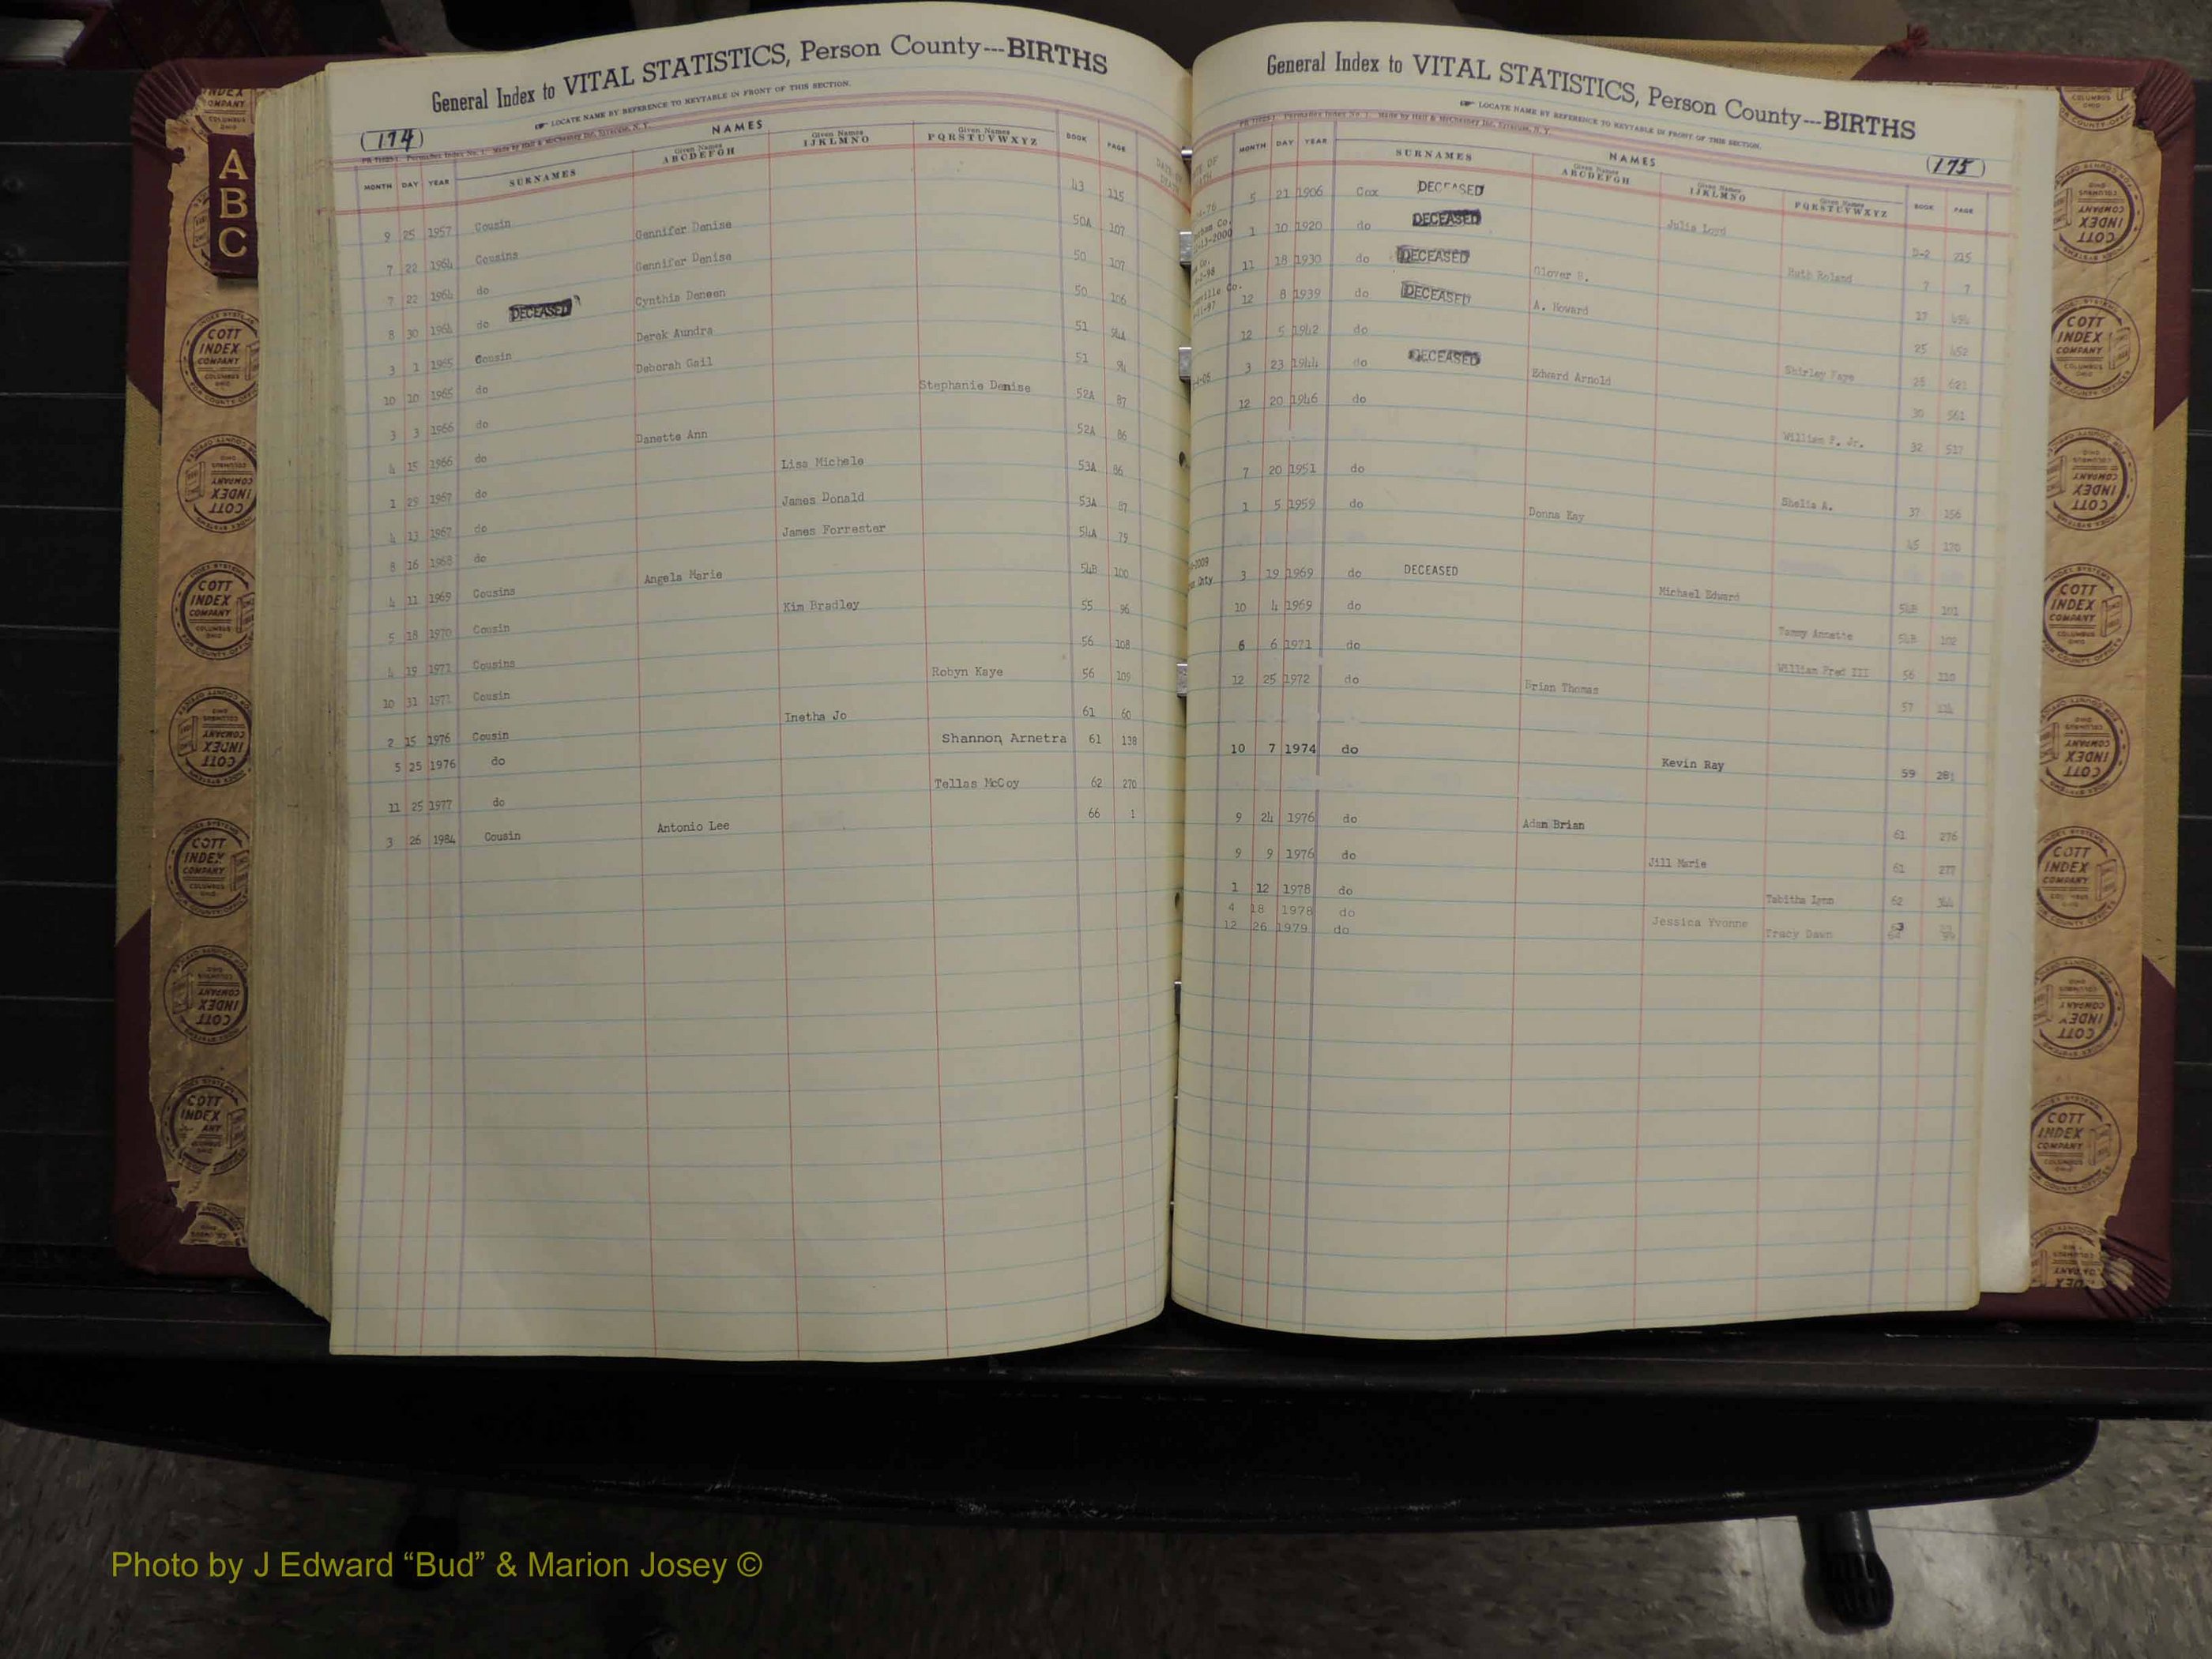 General Index to VITAL STATISTICS, Person County---BIRTHS
LOCATE NAME BY REFERENCE TO KEYTABLE IN FRONT OF THIS SECTION.
(174)
NAMES
MONTH DAY YEAR SURNAMES Given Names ABCDEFGH Given Names IJKLMNO Given Names PQRSTUVWXYZ BOOK PAGE
43 115
9 25 1957 Cousin Gennifer Denise 50A 107
7 22 1964 Cousins Gennifer Denise 50 107
7 22 1964 do Cynthia Deneen 50 106
8 30 1964 do DECEASED Derek Aundra 51 94A
3 1 1965 Cousin Deborah Gail 51 94
10 10 1965 do Stephanie Denise 52A 87
3 3 1966 do Danette Ann 52A 86
4 15 1966 do Lisa Michele 53A 86
1 29 1967 do James Donald 53A 87
4 13 1967 do James Forrester 54A 79
8 16 1968 do
4 11 1969 Cousins Angela Marie 54B 100
5 18 1970 Cousin Kim Bradley 55 96
4 19 1971 Cousins 56 108
10 31 1971 Cousin Robyn Kaye 56 109
2 15 1976 Cousin Inetha Jo 61 60
5 25 1976 do Shannon Arnetra 61 138
11 25 1977 do Tellas McCoy 62 270
3 26 1984 Cousin Antonio Lee 66 1
General Index to VITAL STATISTICS, Person County---BIRTHS
LOCATE NAME BY REFERENCE TO KEYTABLE IN FRONT OF THIS SECTION.
(175)
NAMES
MONTH DAY YEAR SURNAMES Given Names ABCDEFGH Given Names IJKLMNO Given Names PQRSTUVWXYZ BOOK PAGE
5 21 1906 Cox DECEASED Julia Loyd
1 10 1920 do DECEASED Ruth Roland D-2 215
11 18 1930 do DECEASED 7 7
12 8 1939 do DECEASED A. Howard 17
12 5 1942 do Shirley Faye 25 452
3 23 1944 do DECEASED Edward Arnold
12 20 1946 do William F. Jr. 30 561
32 517
7 20 1951 do Shelia A. 37 156
1 5 1959 do Donna Kay 45 170
3 19 1969 do DECEASED Michael Edward 54B 101
10 4 1969 do Tammy Annette 54B 102
6 6 1971 do William Fred III 56 110
12 25 1972 do Brian Thomas 57
10 7 1974 do Kevin Ray 59 281
9 24 1976 do Adam Brian 61 276
9 9 1976 do Jill Marie 61 277
1 12 1978 do Tabitha Lynn 62
4 18 1978 do Jessica Yvonne 63
12 26 1979 do Tracy Dawn
A
B
C
COTT INDEX COMPANY COLUMBUS OHIO
Photo by J Edward “Bud” & Marion Josey ©